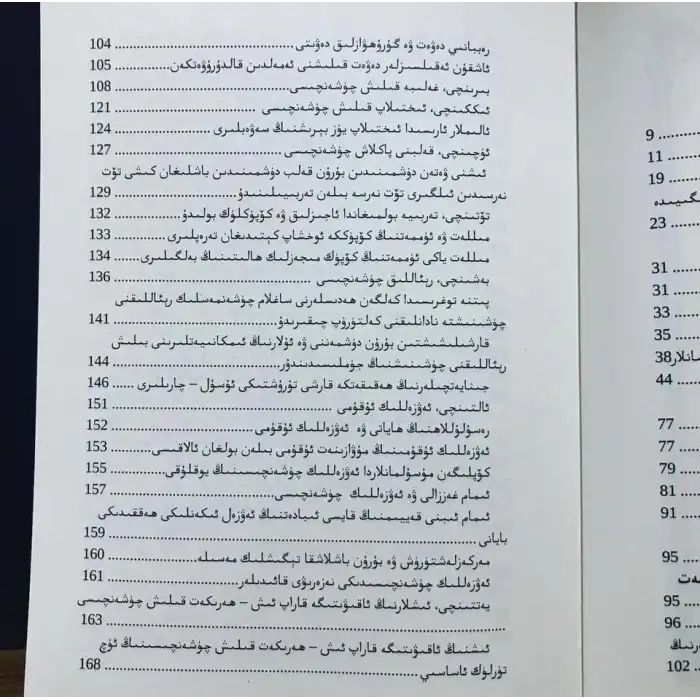 رەببانىي دەۋەت ۋە گۇرۇھۋازلىق دەۋىتى ........ 104
ئاشقۇن ئەقىلسىزلەر دەۋەت قىلىشنى ئەمەلدىن قالدۇرۇۋەتكەن ........ 105
بىرىنچى، غەلىبە قىلىش چۈشەنچىسى ........ 108
ئىككىنچى، ئىختىلاپ قىلىش چۈشەنچىسى ........ 121
ئالىملار ئارىسىدا ئىختىلاپ يۈز بېرىشنىڭ سەۋەبلىرى ........ 124
ئۈچىنچى، قەلبنى پاكلاش چۈشەنچىسى ........ 127
ئىشنى ۋەتەن دۈشمىنىدىن بۇرۇن قەلب دۈشمىنىدىن باشلىغان كىشى تۆت
نەرسىدىن ئىلگىرى تۆت نەرسە بىلەن تەربىيىلىنىدۇ ........ 129
تۆتىنچى، تەربىيە بولمىغاندا ئاجىزلىق ۋە كۆپۈكلۈك بولىدۇ ........ 132
مىللەت ۋە ئۈممەتنىڭ كۆپۈككە ئوخشاپ كېتىدىغان تەرەپلىرى ........ 133
مىللەت ياكى ئۈممەتنىڭ كۆپۈك مىجەزلىك ھالىتىنىڭ بەلگىلىرى ........ 134
بەشىنچى، رېئاللىق چۈشەنچىسى ........ 136
پىتنە توغرىسىدا كەلگەن ھەدىسلەرنى ساغلام چۈشەنمەسلىك رېئاللىقنى
چۈشىنىشتە نادانلىقنى كەلتۈرۈپ چىقىرىدۇ ........ 141
قارشىلىشىشتىن بۇرۇن دۈشمەننى ۋە ئۇلارنىڭ ئىمكانىيەتلىرىنى بىلىش
رېئاللىقنى چۈشىنىشنىڭ جۈملىسىدىندۇر ........ 144
جىنايەتچىلەرنىڭ ھەقىقەتكە قارشى تۇرۇشتىكى ئۇسۇل – چارىلىرى ...... 146
ئالتىنچى، ئەۋزەللىك ئۇقۇمى ........ 151
رەسۇلۇللاھنىڭ ھاياتى ۋە ئەۋزەللىك ئۇقۇمى ........ 152
ئەۋزەللىك ئۇقۇمىنىڭ مۇۋازىنەت ئۇقۇمى بىلەن بولغان ئالاقىسى ........ 153
كۆپلىگەن مۇسۇلمانلاردا ئەۋزەللىك چۈشەنچىسىنىڭ يوقلۇقى ........ 155
ئىمام غەززالى ۋە ئەۋزەللىك چۈشەنچىسى ........ 157
ئىمام ئىبنى قەييىمنىڭ قايسى ئىبادەتنىڭ ئەۋزەل ئىكەنلىكى ھەققىدىكى
بايانى ........ 159
مەركەزلەشتۈرۈش ۋە بۇرۇن باشلاشقا تېگىشلىك مەسىلە ........ 160
ئەۋزەللىك چۈشەنچىسىدىكى نەزەرىۋى قائىدىلەر ........ 161
يەتتىنچى، ئىشلارنىڭ ئاقىۋىتىگە قاراپ ئىش – ھەرىكەت قىلىش چۈشەنچىسى
........ 163
ئىشنىڭ ئاقىۋىتىگە قاراپ ئىش – ھەرىكەت قىلىش چۈشەنچىسىنىڭ ئۈچ
تۈرلۈك ئاساسىي ........ 168
9 ........
11 ........
19 ........
23 ........
31 ........
31 ........
33 ........
35 ........
38
44 ........
77 ........
77 ........
79 ........
81 ........
91 ........
95 ........
95 ........
96 ........
102 ..